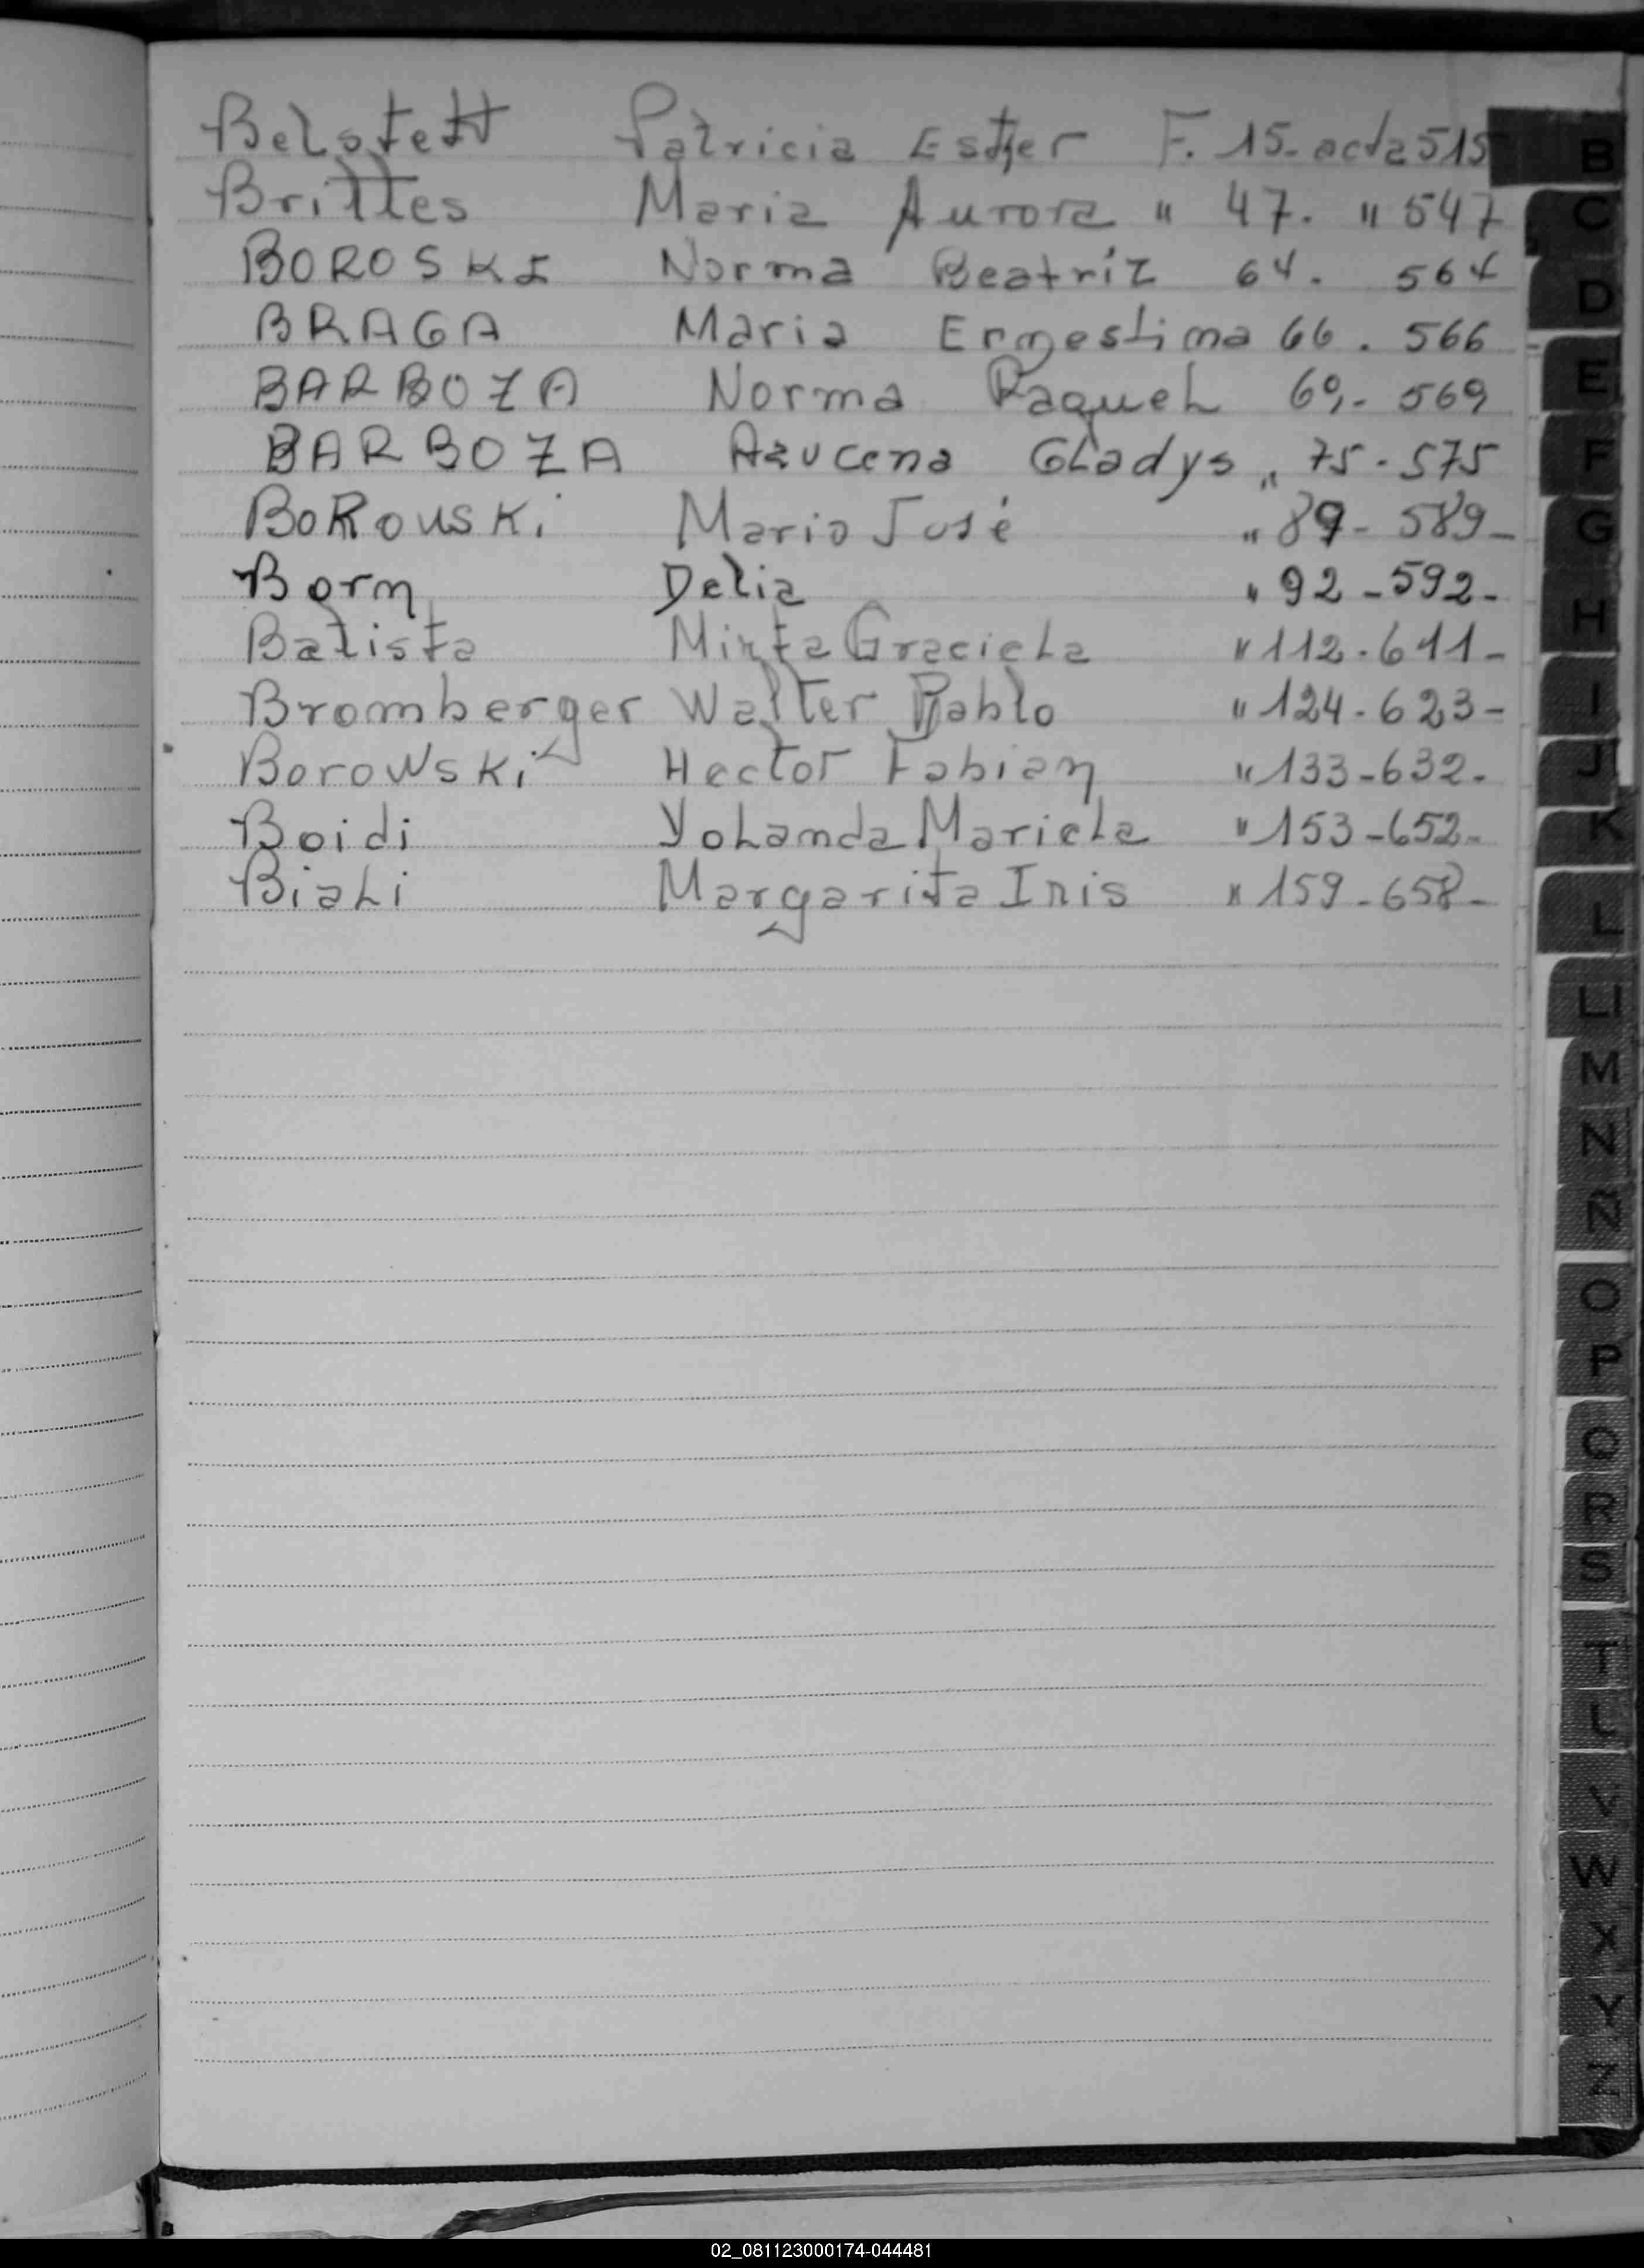 Belstett Patricia Esther F. 15- acta 515
Brittes Maria Aurora " 47. " 547
BOROSKI Norma Beatriz 64. 564
BRAGA Maria Ernestina 66. 566
BARBOZA Norma Raquel 69,- 569
BARBOZA Azucena Gladys " 75-575
BoRouski Mario José " 89- 589-
Born Delia " 92-592-
Batista Mirta Graciela " 112-611-
Bromberger Walter Pablo " 124-623-
Borowski Hector Fabian " 133-632.
Boidi Yolanda Mariela " 153-652-
Biali Margarita Inis " 159-658-
B
C
D
E
F
G
H
I
J
K
L
Ll
M
N
Ñ
O
P
Q
R
S
T
U
V
W
X
Y
Z
02_081123000174-044481